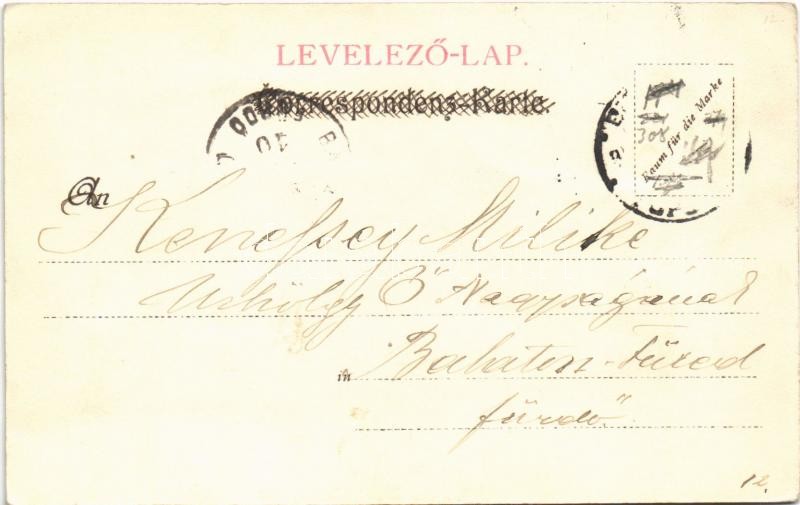 12
LEVELEZŐ-LAP.
Correspondenz-Karte.
Raum für die Marke
308
An
Kenessey Milike
Urhölgy Ő Nagyságának
in Balaton-Füred
fürdő.
12.